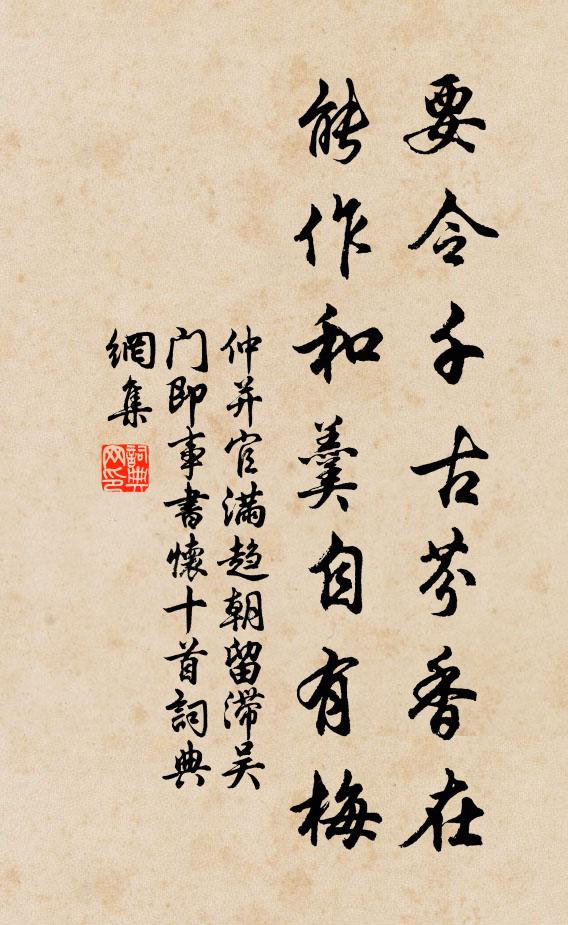 要令千古芬香在
能作和羹自有梅
仲并官满趋朝留滞吴
门即事書懷十首詞典
網集
詞典
网印